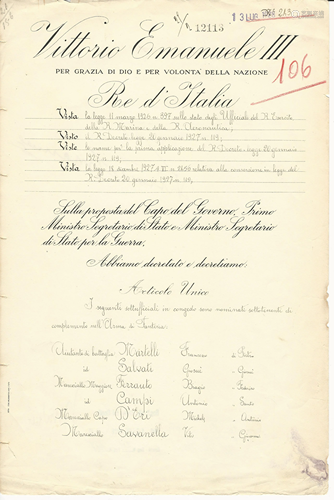 N. 12113
13 LUG
106
Vittorio Emanuele III
PER GRAZIA DI DIO E PER VOLONTÀ DELLA NAZIONE
Re d'Italia
Vista la legge 11 marzo 1926 n. 397 sullo stato degli Ufficiali del R. Esercito
della R. Marina e della R. Aeronautica;
Visto il R. Decreto legge 20 gennaio 1927 n. 119;
Viste le norme per la prima applicazione del R. Decreto legge 20 gennaio
1927 n. 119;
Vista la legge 18 dicembre 1927 n. relativa alla conversione in legge del
R. Decreto 20 gennaio 1927 n. 119;
Sulla proposta del Capo del Governo, Primo
Ministro Segretario di Stato e Ministro Segretario
di Stato per la Guerra;
Abbiamo decretato e decretiamo:
Articolo Unico
I seguenti sottufficiali in congedo sono nominati sottotenenti di
complemento nell'Arma di Fanteria:
Aiutante di battaglia Martelli Francesco di
id Salvati di
Maresciallo Maggiore Ferrauto Biagio di
id Campi Antonio di
Maresciallo Capo D'Eri Michele di Antonio
Maresciallo Savanella Vito di